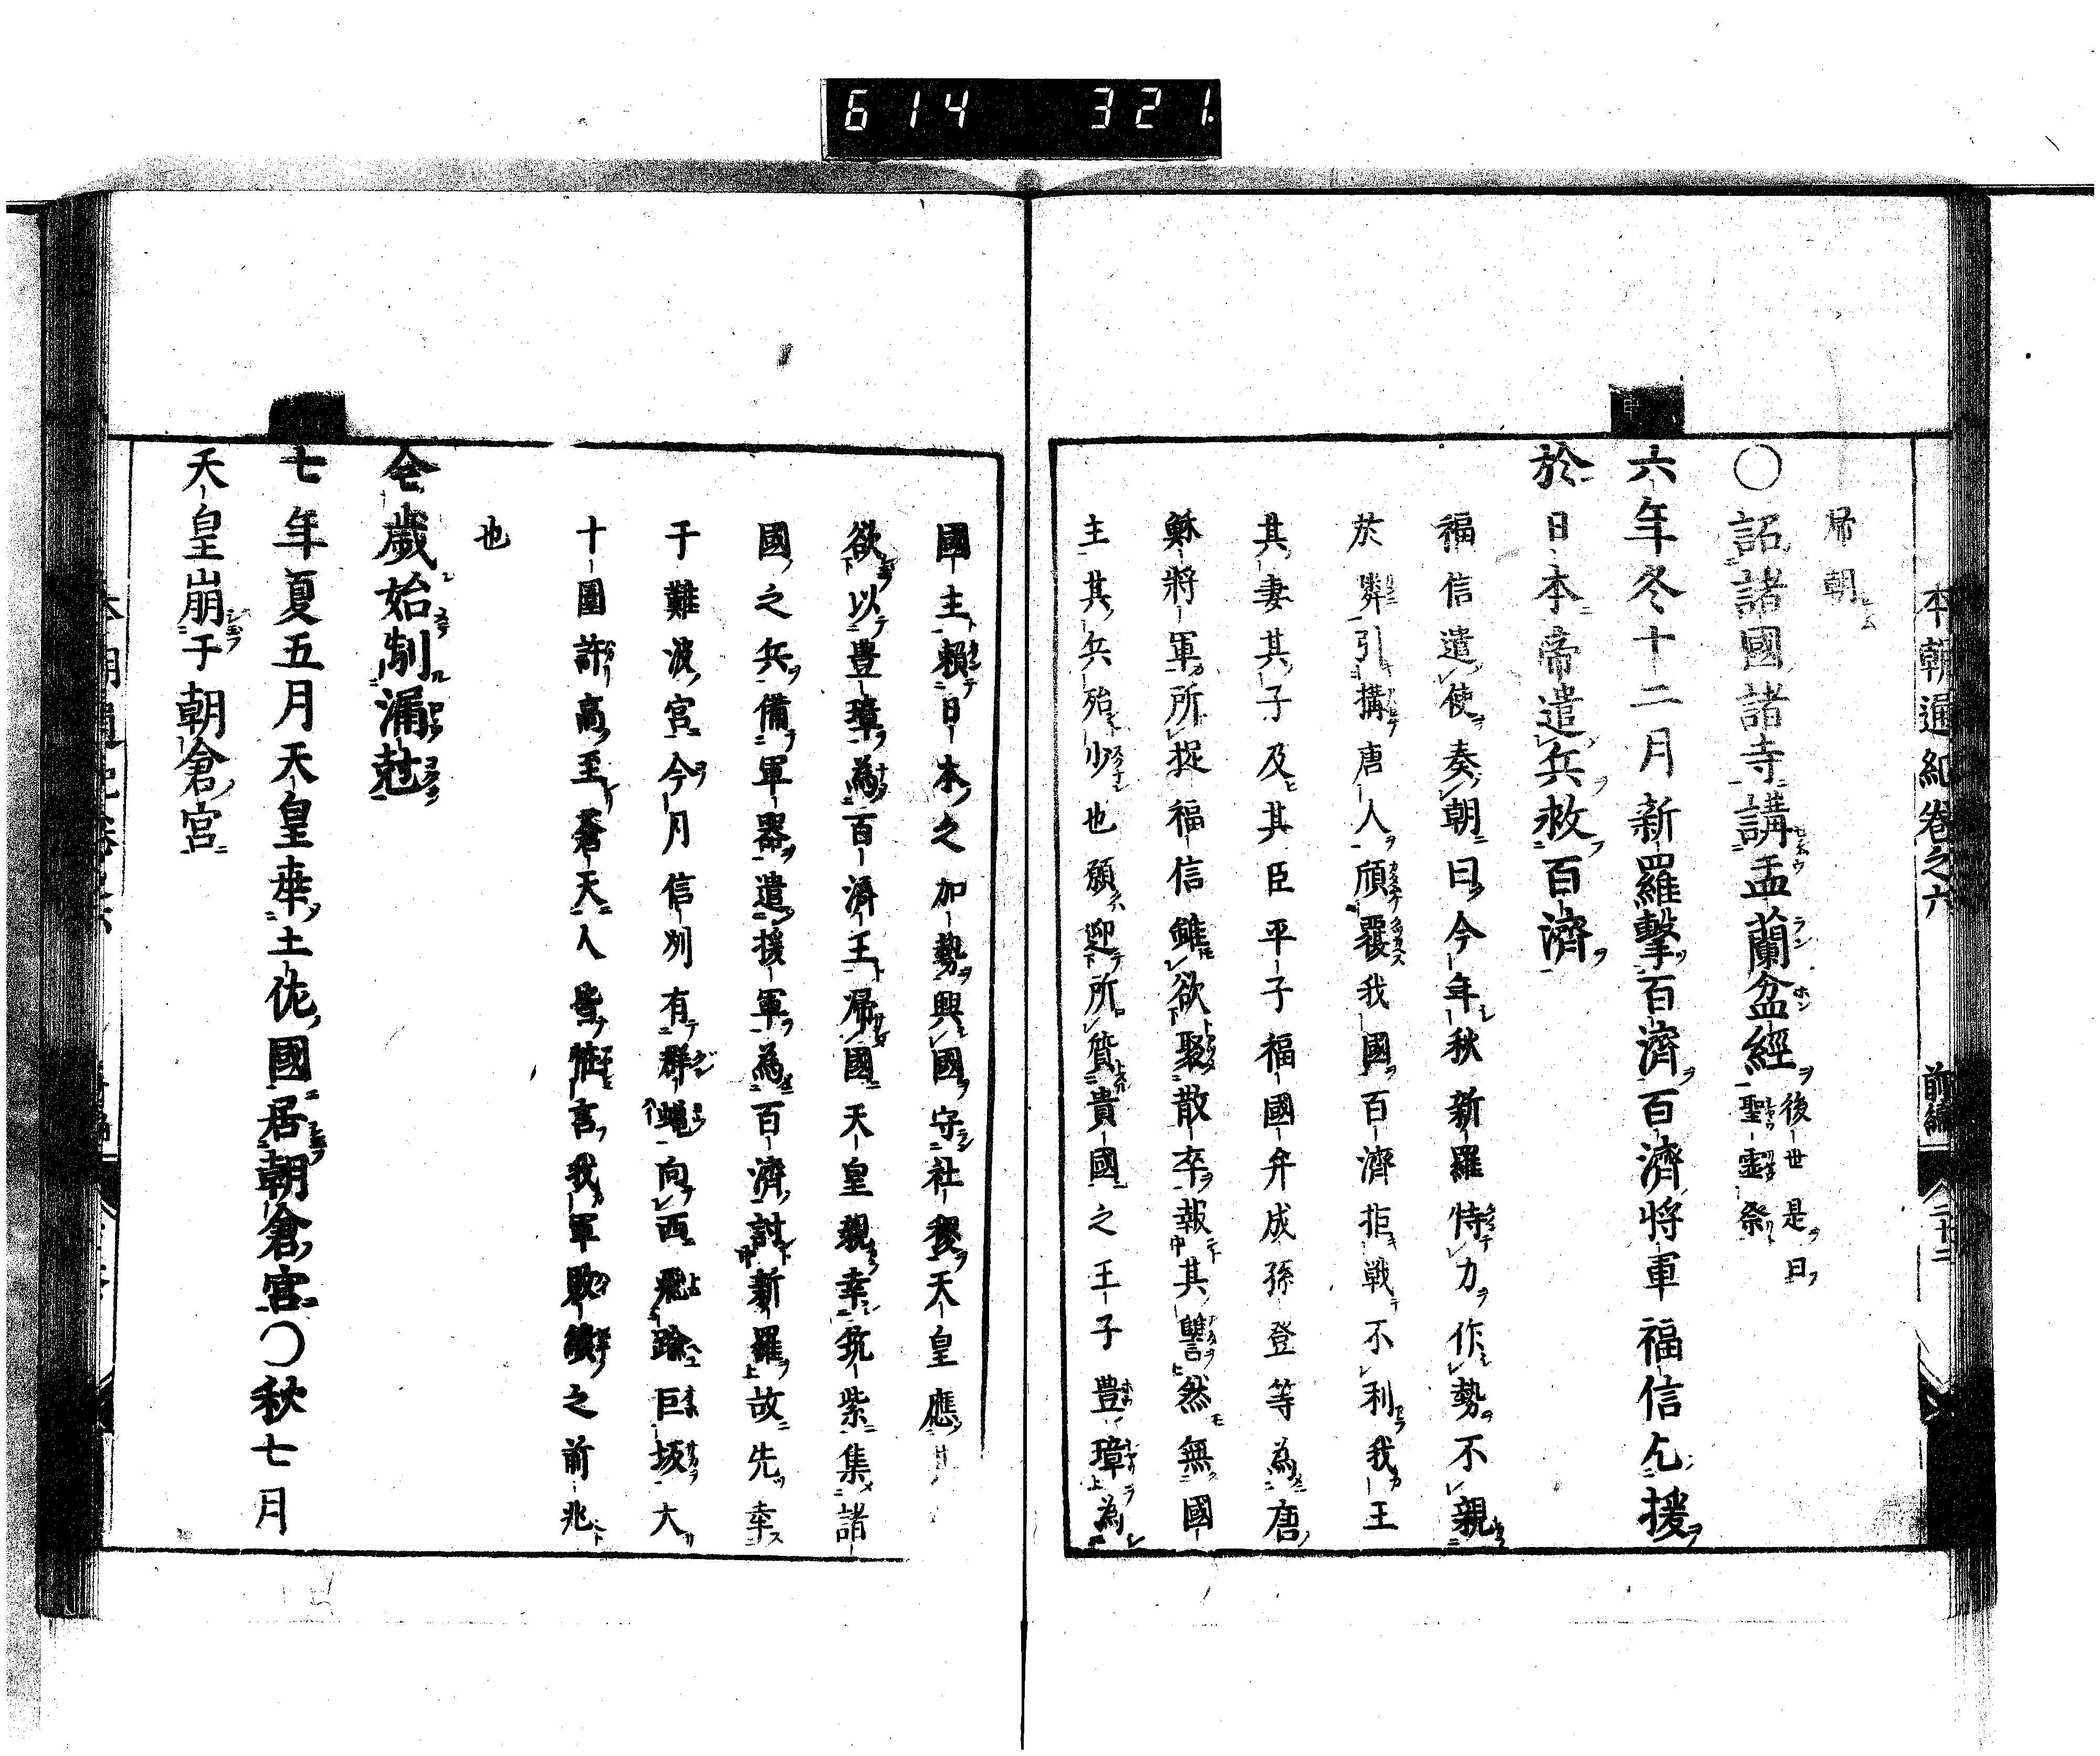 614 321
本朝通紀卷之六 前編 二十二
帰朝
〇詔諸國諸寺講盂蘭盆經 後世是日聖霊祭
六年冬十二月新羅擊百濟百濟將軍福信乞援
於日本帝遣兵救百濟
福信遣使奏朝曰今年秋新羅恃力作勢不親
於鄰引搆唐人傾覆我國百濟拒戦不利我王
其妻其子及其臣平子福國弁成孫登等為唐
穌將軍所捉福信雖欲聚散卒報其讐然無國
主其兵殆少也願迎所質貴國之王子豊璋為
國主頼日本之加勢興國守社稷天皇應其
欲以豊璋為百濟王帰國天皇親幸筑紫集諸
國之兵備軍器遣援軍為百濟討新羅故先幸
于難波宮今月信列有群蝿向西飛踰巨坂大
十圍許高至蒼天人皆恠言我軍敗績之前兆
也
仝歲始制漏尅
七年夏五月天皇幸土佐國居朝倉宮〇秋七月
天皇崩于朝倉宮